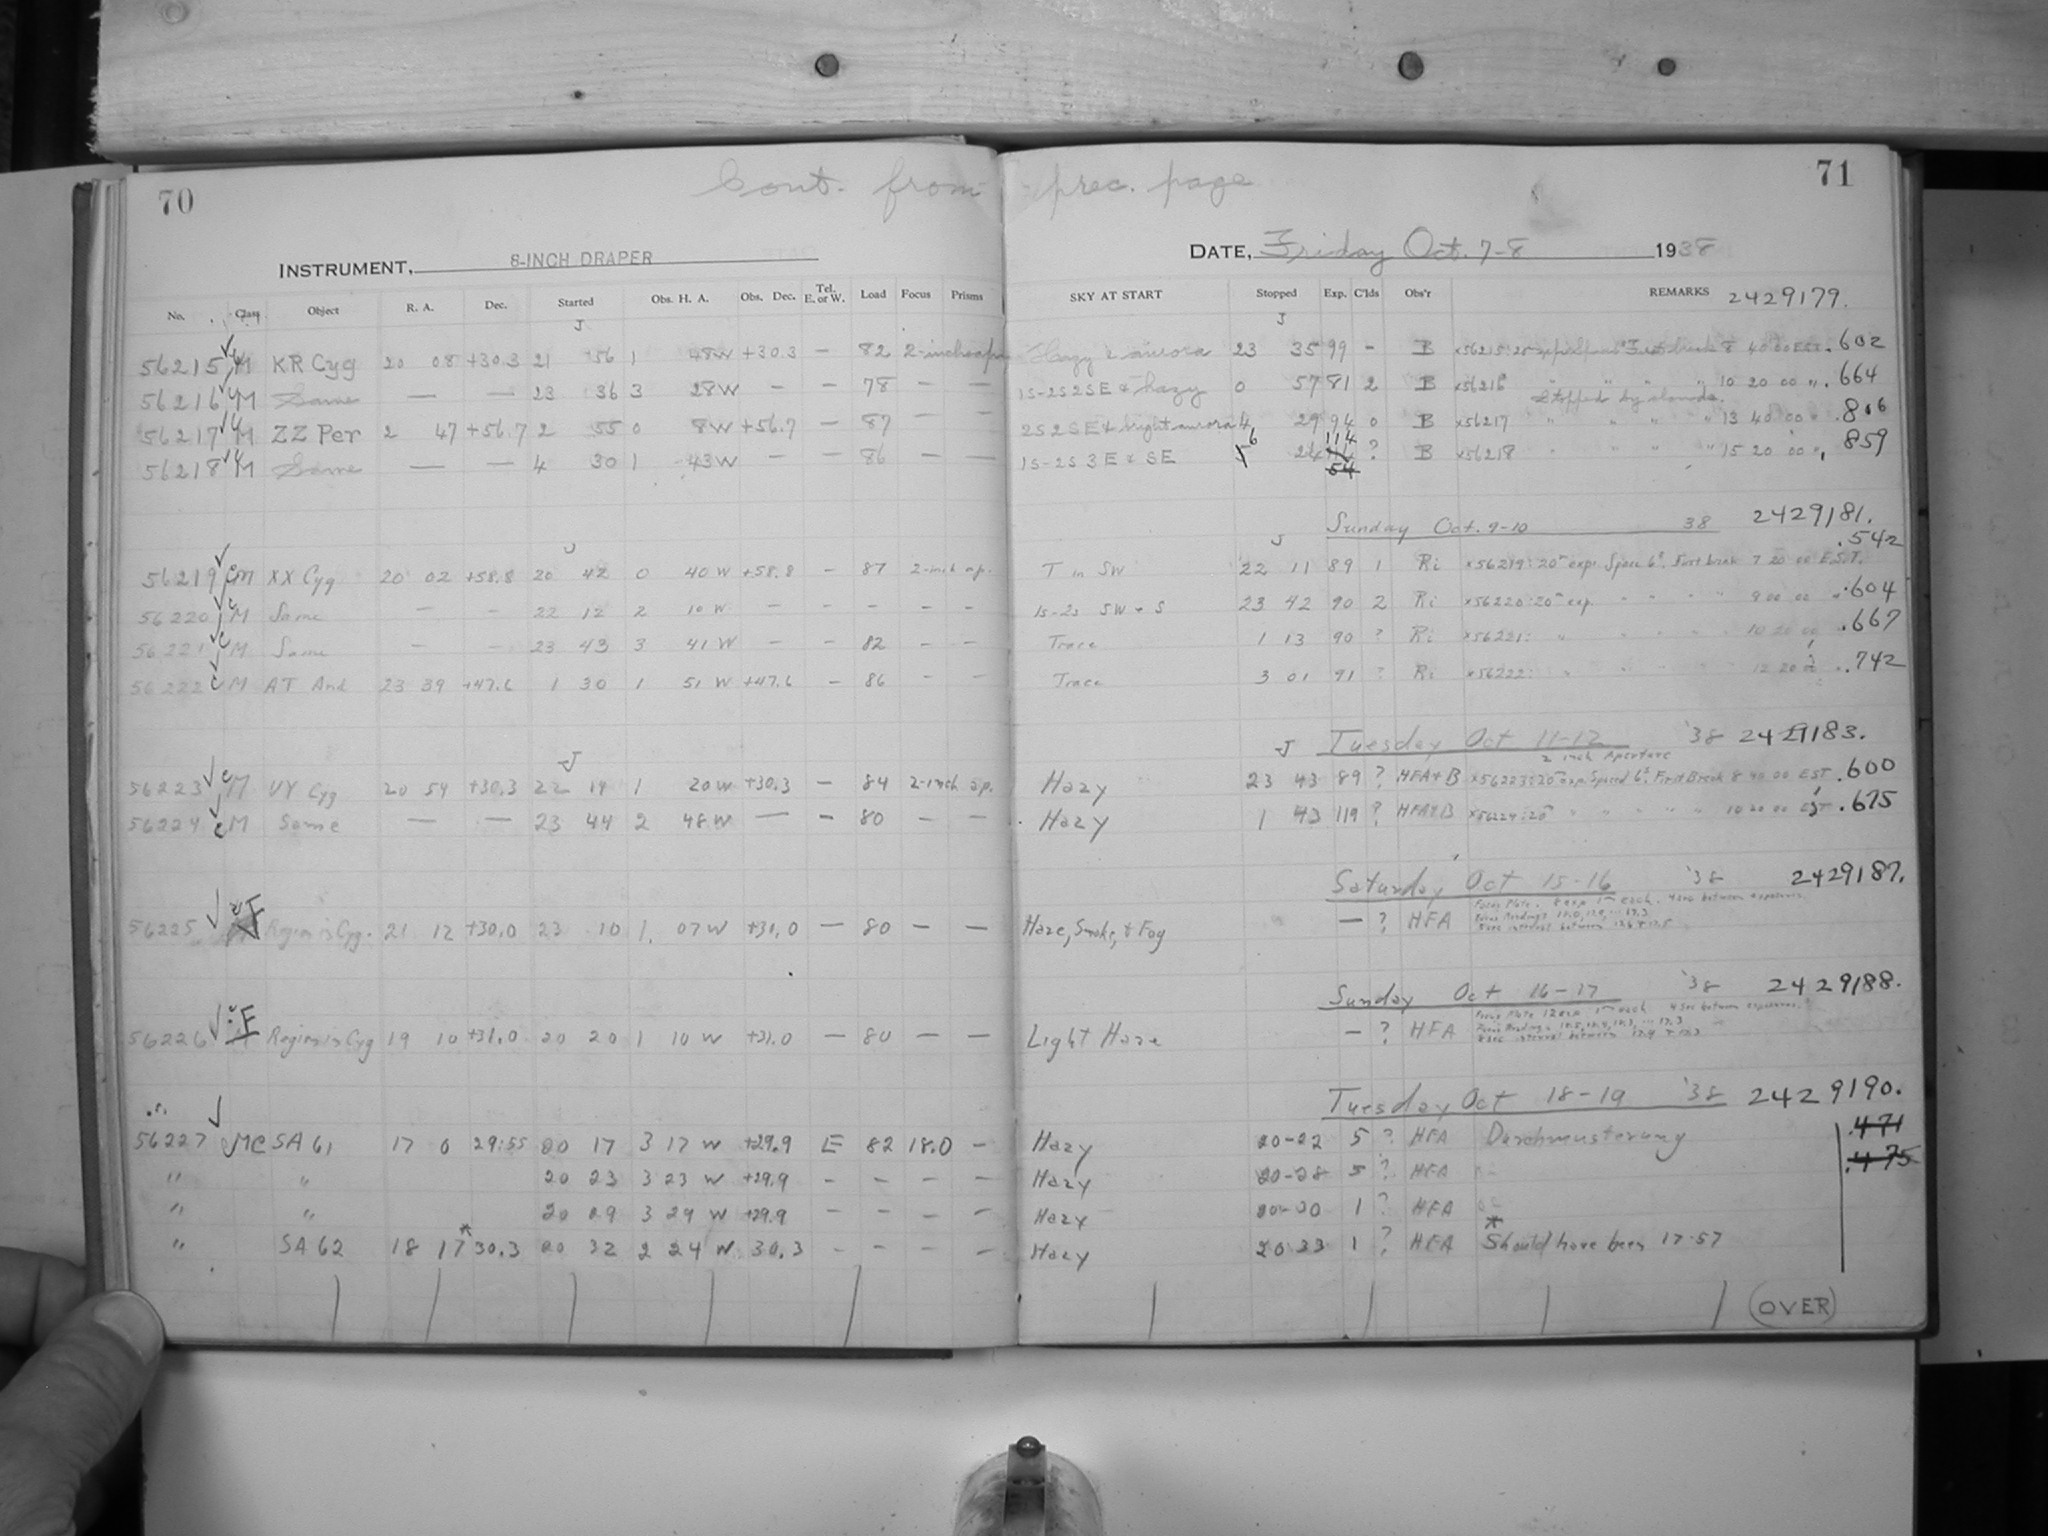 70
Cont. from prec. page
71
INSTRUMENT, 8-INCH DRAPER
DATE, Friday Oct. 7-8 1938
No. Class Object R. A. Dec. Started Obs. H. A. Obs. Dec. Tel. E. or W. Load Focus Prisms SKY AT START Stopped Exp. C'lds Obs'r REMARKS 2429179.
J J
56215 M KR Cyg 20 08 +30.3 21 56 1 48W +30.3 — 82 2-inch Hazy & aurora 23 35 99 - B x56215: First break 8 40 00 EST .602
56216 M Same — — 23 36 3 28W — — 78 — — 1S-2S 2SE & hazy 0 57 81 2 B x56216 " " " " 10 20 00 " .664
Stopped by clouds.
56217 M ZZ Per 2 47 +56.7 2 55 0 8W +56.7 — 87 — — 2S 2SE & bright aurora 4 29 94 0 B x56217 " " " " 13 40 00 " .806
56218 M Same — — 4 30 1 43W — — 86 — — 1S-2S 3E & SE 6 24 114 ? B x56218 " " " " 15 20 00 " .859
54
Sunday Oct. 9-10 38 2429181.
J J
56219 CM XX Cyg 20 02 +58.8 20 42 0 40W +58.8 — 87 2-inch ap. T in SW 22 11 89 1 Ri x56219: 20m exp. Space 6s. First break 7 20 00 EST. .542
56220 M Same — — 22 12 2 10W — — — — — 1S-2S SW & S 23 42 90 2 Ri x56220: 20m exp. " " " " 9 00 00 " .604
56221 M Same — — 23 43 3 41W — — 82 — — Trace 1 13 90 ? Ri x56221: " " " " " 10 20 00 " .667
56222 M AT And 23 39 +47.6 1 30 1 51W +47.6 — 86 — — Trace 3 01 91 ? Ri x56222: " " " " " 12 20 " .742
Tuesday Oct 11-12 '38 2429183.
2 inch Aperture
J J
56223 M VY Cyg 20 59 +30.3 22 14 1 20W +30.3 — 84 2-inch ap. Hazy 23 43 89 ? HFA+B x56223: 20m exp. Spaced 6s. First Break 8 40 00 EST .600
56224 M Same — — 23 44 2 48W — — 80 — — Hazy 1 43 119 ? HFA+B x56224: 20m " " " " 10 20 00 EST .675
Saturday Oct 15-16 '38 2429187.
Focus Plate. exp 1m each. 4 sec between exposures.
56225 F Region in Cyg. 21 12 +30.0 23 10 1 07W +31.0 — 80 — — Haze, Smoke, & Fog — ? HFA
Sunday Oct 16-17 '38 2429188.
Focus Plate 12 exp 1m each 4 sec between exposures.
56226 F Region in Cyg 19 10 +31.0 20 20 1 10W +31.0 — 80 — — Light Haze — ? HFA
Tuesday Oct 18-19 '38 2429190.
56227 MC SA 61 17 0 29:55 20 17 3 17 W +29.9 E 82 18.0 — Hazy 20-22 5 ? HFA Durchmusterung .471
" " 20 23 3 23 W +29.9 - - - - Hazy 20-28 5 ? HFA .475
" " 20 29 3 29 W +29.9 - - - - Hazy 20-30 1 ? HFA
" SA 62 18 17* 30.3 20 32 2 24 W 30.3 - - - - Hazy 20 33 1 ? HFA *Should have been 17-57
(OVER)